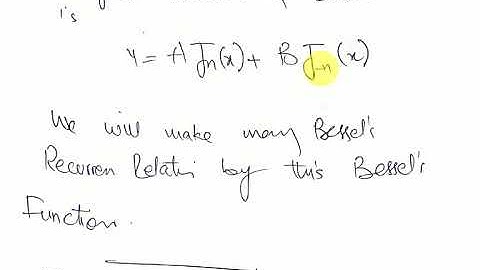 is
y = A Jn(x) + B J-n(x)
We will make many Bessel's
Recurren Relati by this Bessel's
Function.